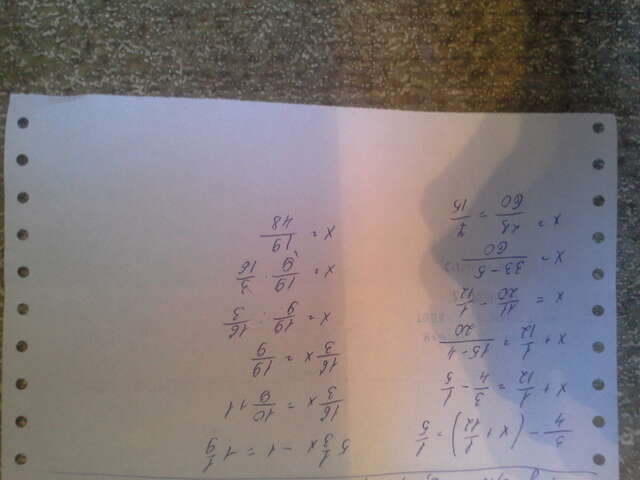 3/4 - (x + 1/12) = 1/5
x + 1/12 = 3/4 - 1/5
x + 1/12 = 15-4/20
x = 11/20 - 1/12
x = 33-5/60
x = 28/60 = 7/15
5 1/3 x - 1 = 1 1/9
16/3 x = 10/9 + 1
16/3 x = 19/9
x = 19/9 : 16/3
x = 19/9 · 3/16
x = 19/48